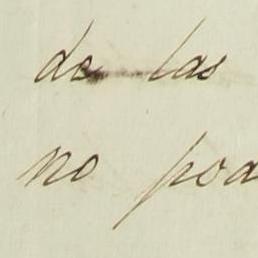 de las
no pod